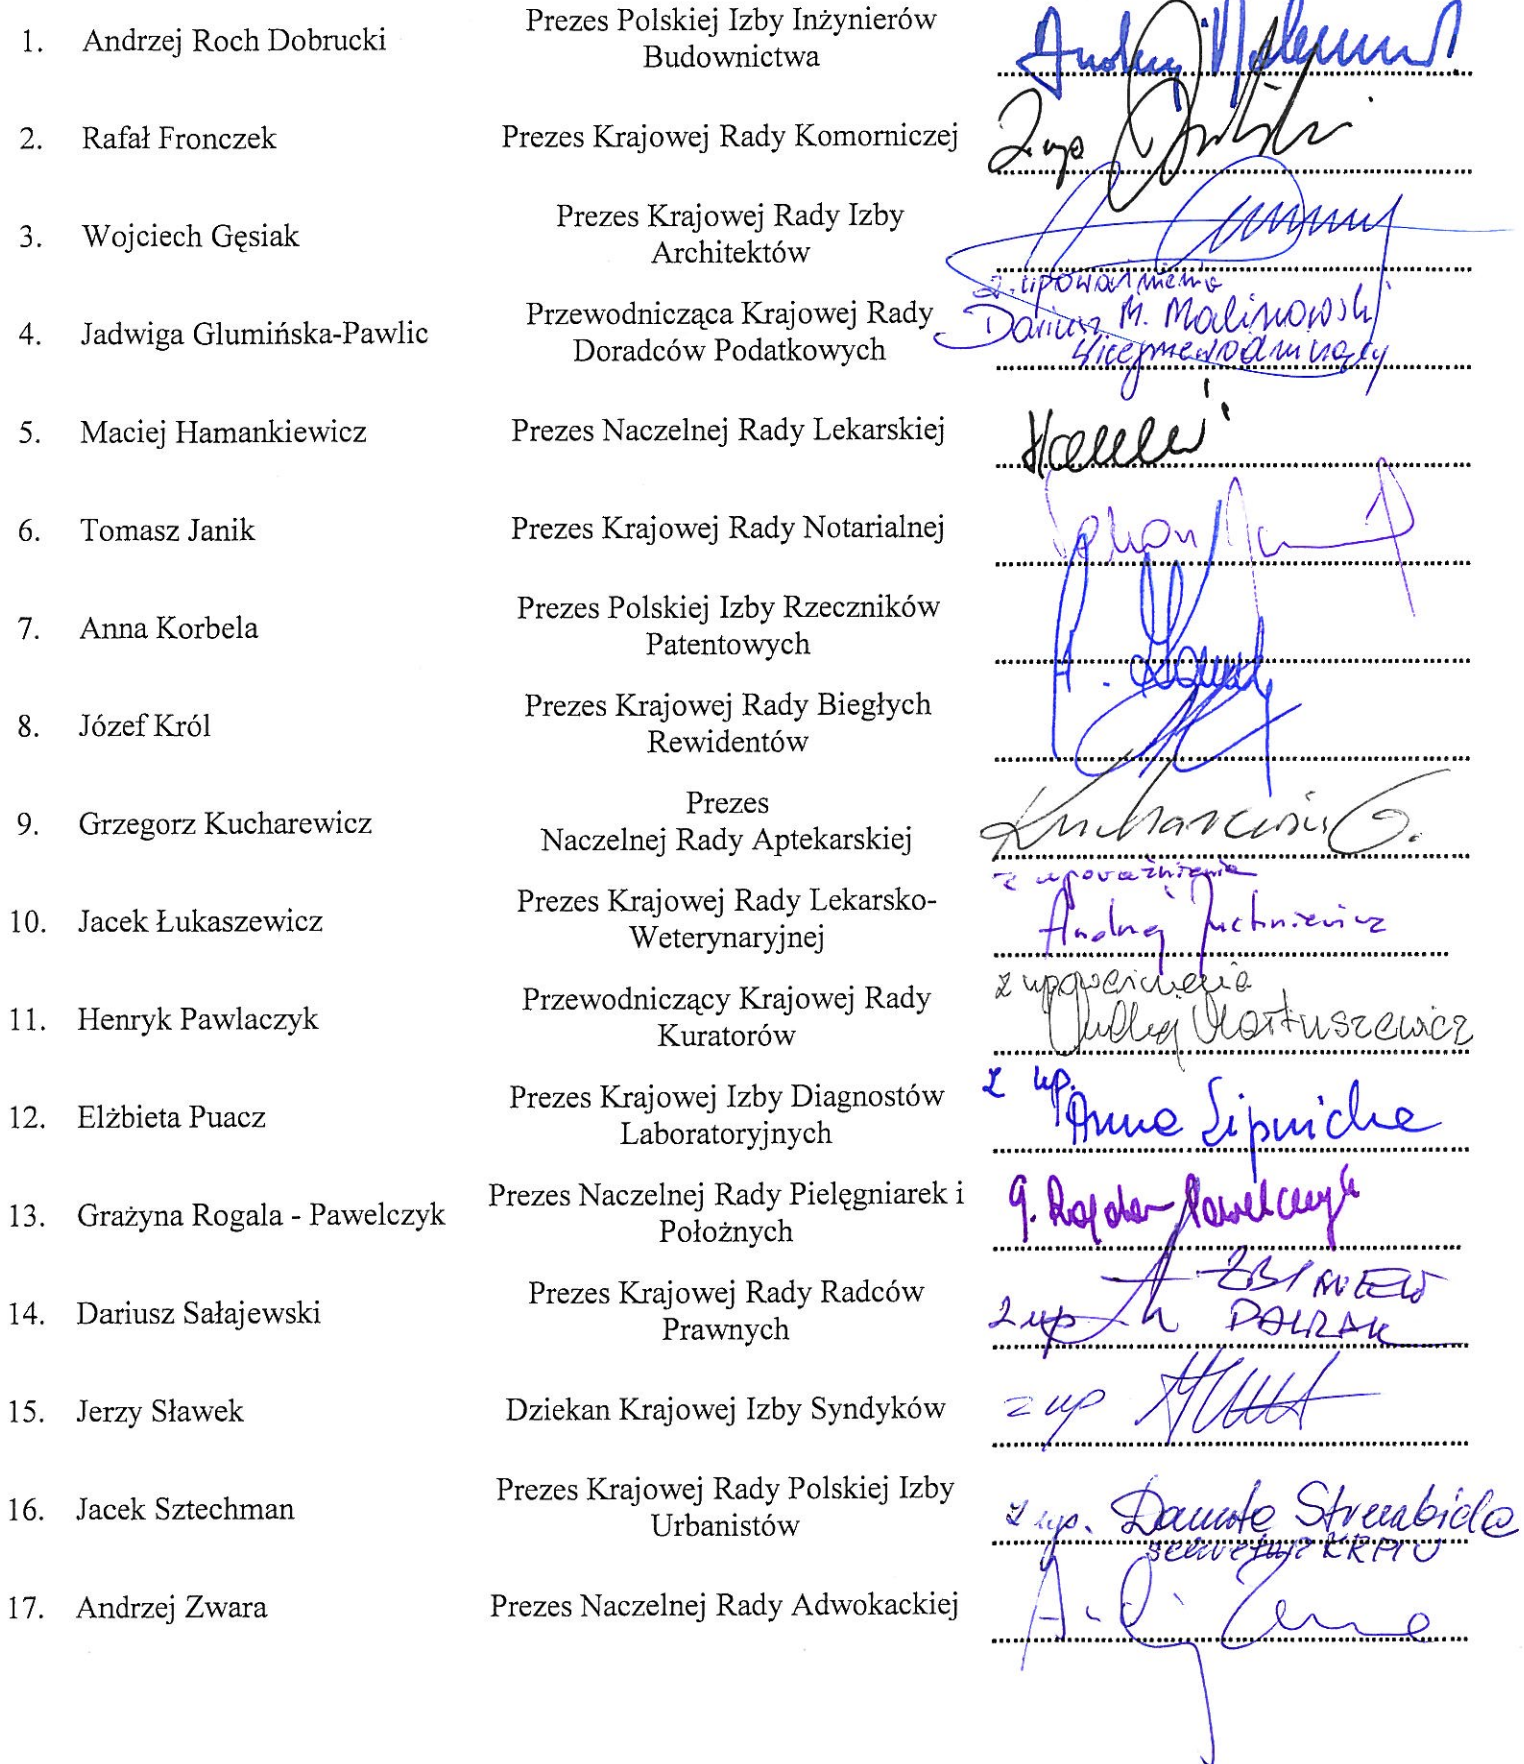 1. Andrzej Roch Dobrucki Prezes Polskiej Izby Inżynierów
Budownictwa
2. Rafał Fronczek Prezes Krajowej Rady Komorniczej Z up
3. Wojciech Gęsiak Prezes Krajowej Rady Izby
Architektów
z upoważnienia
4. Jadwiga Glumińska-Pawlic Przewodnicząca Krajowej Rady Dariusz M. Malinowski
Doradców Podatkowych Wiceprzewodniczący
5. Maciej Hamankiewicz Prezes Naczelnej Rady Lekarskiej
6. Tomasz Janik Prezes Krajowej Rady Notarialnej
7. Anna Korbela Prezes Polskiej Izby Rzeczników
Patentowych
8. Józef Król Prezes Krajowej Rady Biegłych
Rewidentów
9. Grzegorz Kucharewicz Prezes
Naczelnej Rady Aptekarskiej Kucharewicz G.
z upoważnienia
10. Jacek Łukaszewicz Prezes Krajowej Rady Lekarsko-
Weterynaryjnej Andrzej Juchniewicz
z upoważnienia
11. Henryk Pawlaczyk Przewodniczący Krajowej Rady
Kuratorów Andrzej Martuszewicz
z up.
12. Elżbieta Puacz Prezes Krajowej Izby Diagnostów
Laboratoryjnych Anna Lipnicka
13. Grażyna Rogala - Pawelczyk Prezes Naczelnej Rady Pielęgniarek i G. Rogala-Pawelczyk
Położnych
14. Dariusz Sałajewski Prezes Krajowej Rady Radców ZBIGNIEW
Prawnych z up PAWLAK
15. Jerzy Sławek Dziekan Krajowej Izby Syndyków z up
16. Jacek Sztechman Prezes Krajowej Rady Polskiej Izby z up. Danuta
Urbanistów
sekretarz KRPIU
17. Andrzej Zwara Prezes Naczelnej Rady Adwokackiej